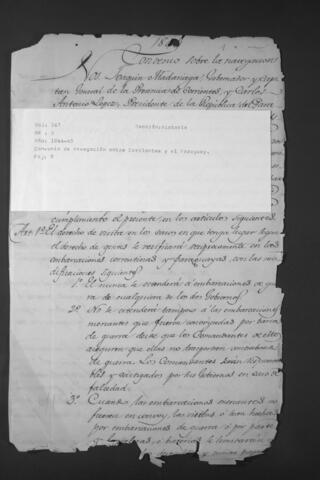 Convenio sobre la navegacion
Nos Joaquin Madariaga Gobernador y Capi-
tan Jeneral de la Provincia de Corrientes, y Carlos
Antonio Lopez, Presidente de la República del Para-
Vol: 267
Nº : 5
Año: 1844-45
Convenio de navegación entre Corrientes y el Paraguay.
Sección Historia
cumplimiento el presente en los articulos siguientes.
Art. 1º El derecho de visita en los casos en que tenga lugar segun
el derecho de gentes se verificará reciprocamente en las
embarcaciones correntinas y paraguayas, con las mo-
dificaciones siguientes
1ª El nunca se estenderá á embarcaciones de gue-
rra de cualquiera de los dos Gobiernos
2ª No se estenderá tampoco á las embarcaciones
mercantes que fueren convoyadas por barca
de guerra desde que los Comandantes de ellos
aseguren que ellas no trasportan contrabando
de guerra. Los Comandantes serán responsa-
bles y castigados por sus Gobiernos en caso de
falsedad.
3ª Cuando las embarcaciones mercantes no
fueren en convoy, las visitas ó han hechas
por embarcaciones de guerra, ó por parte